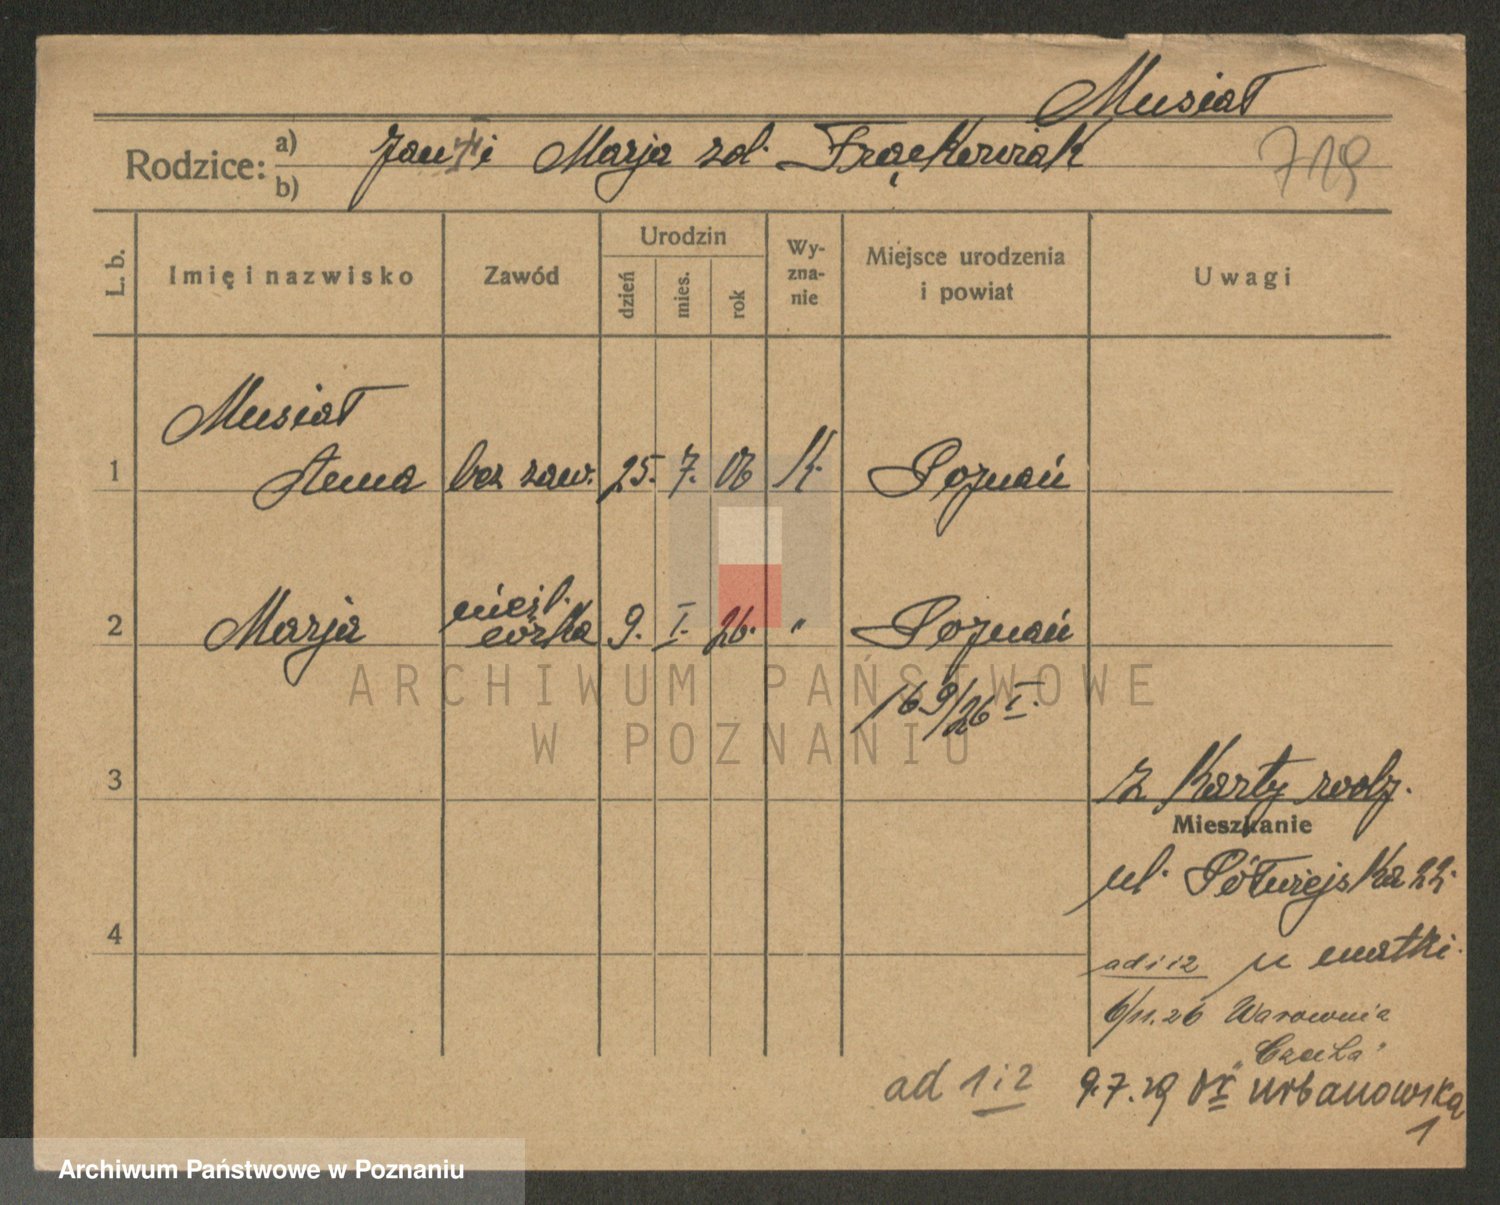 Musiał
Rodzice: a) b) Jan i Marja zd. Frąckowiak
719
L. b. Imię i nazwisko Zawód Urodzin dzień mies. rok Wy-zna-nie Miejsce urodzenia i powiat Uwagi
Musiał
1 Anna bez zaw. 25. 7. 06 K. Poznań
nieśl.
2 Marja córka 9. I. 26. " Poznań
169/26 I.
ARCHIWUM PAŃSTWOWE
W POZNANIU
3
z Karty rodz.
Mieszkanie
ul. Półwiejska 22.
4
u matki.
ad 1 i 2
6/11.26 Warownia
"Czecha"
ad 1 i 2 9.7.29 Urbanowska
1
Archiwum Państwowe w Poznaniu